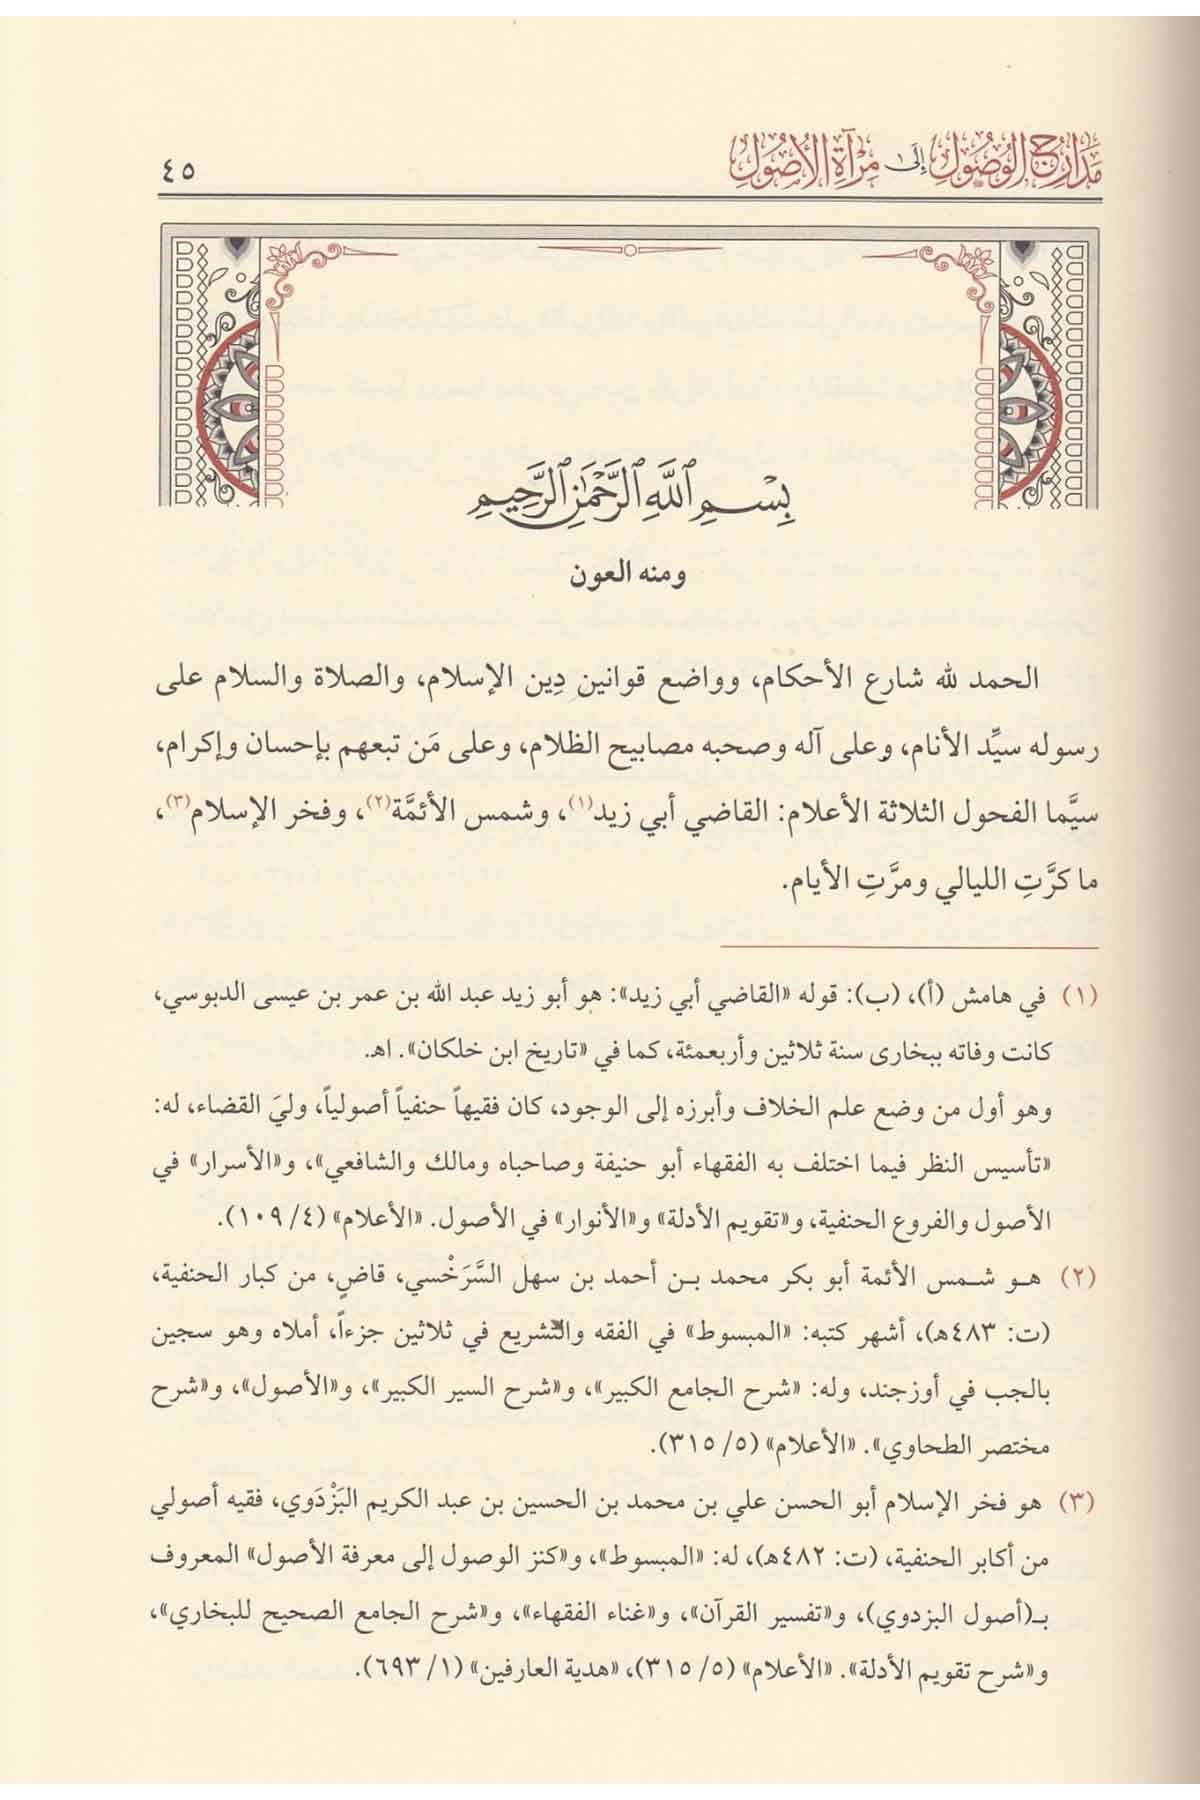 مَدَارِجُ الوُصُولِ إِلَى مِرْآةِ الأُصُولِ
٤٥
بِسْمِ ٱللَّهِ ٱلرَّحْمَٰنِ ٱلرَّحِيمِ
ومنه العون
الحمد لله شارع الأحكام، وواضع قوانين دِين الإسلام، والصلاة والسلام على
رسوله سيِّد الأنام، وعلى آله وصحبه مصابيح الظلام، وعلى مَن تبعهم بإحسان وإكرام،
سيَّما الفحول الثلاثة الأعلام: القاضي أبي زيد(١)، وشمس الأئمَّة(٢)، وفخر الإسلام(٣)،
ما كرَّتِ الليالي ومرَّتِ الأيام.
(١) في هامش (أ)، (ب): قوله «القاضي أبي زيد»: هو أبو زيد عبد الله بن عمر بن عيسى الدبوسي،
كانت وفاته ببخارى سنة ثلاثين وأربعمئة، كما في «تاريخ ابن خلكان». اهـ.
وهو أول من وضع علم الخلاف وأبرزه إلى الوجود، كان فقيهاً حنفياً أصولياً، وليَ القضاء، له:
«تأسيس النظر فيما اختلف به الفقهاء أبو حنيفة وصاحباه ومالك والشافعي»، و«الأسرار» في
الأصول والفروع الحنفية، و«تقويم الأدلة» و«الأنوار» في الأصول. «الأعلام» (٤/ ١٠٩).
(٢) هـو شـمس الأئمة أبو بكر محمد بـن أحمد بن سهل السَّرَخْسي، قاضٍ، من كبار الحنفية،
(ت: ٤٨٣هـ)، أشهر كتبه: «المبسوط» في الفقه والتشريع في ثلاثين جزءاً، أملاه وهو سجين
بالجب في أوزجند، وله: «شرح الجامع الكبير»، و«شرح السير الكبير»، و«الأصول»، و«شرح
مختصر الطحاوي». «الأعلام» (٥/ ٣١٥).
(٣) هو فخر الإسلام أبو الحسن علي بن محمد بن الحسين بن عبد الكريم البَزْدَوي، فقيه أصولي
من أكابر الحنفية، (ت: ٤٨٢هـ)، له: «المبسوط»، و«كنز الوصول إلى معرفة الأصول» المعروف
بـ(أصول البزدوي)، و«تفسير القرآن»، و«غناء الفقهاء»، و«شرح الجامع الصحيح للبخاري»،
و«شرح تقويم الأدلة». «الأعلام» (٥/ ٣١٥)، «هدية العارفين» (١/ ٦٩٣).